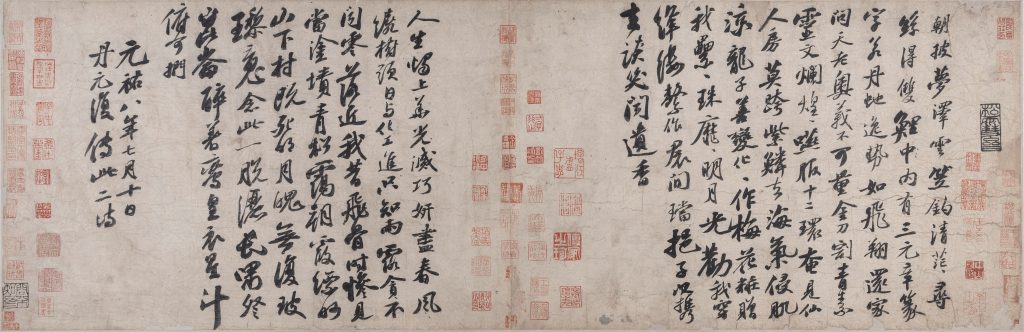 朝披夢澤雲笠釣清茫々尋
絲得雙鯉中内有三元章篆
字若丹蛇逸勢如飛翔還家
問天老奥義不可量金刀割青素
靈文爛煌々嚥服十二環奄見仙
人房莫跨紫鱗去海氣侵肌
涼龍子善變化々作梅花粧贈
我纍々珠靡々明月光勸我穿
絳縷繫作裙間璫挹子以攜
去談笑聞遺香
人生燭上華光滅巧妍盡春風
繞樹頭日與化工進只知雨露貪不
聞零落近我昔飛骨時慘見
當塗墳青松靄朝霞縹緲
山下村既死明月魄無復玻
瓈魂念此一脱灑長嘯祭
崑崙醉着鸞皇衣星斗
俯可捫
元祐八年七月十日
丹元復傳此二詩